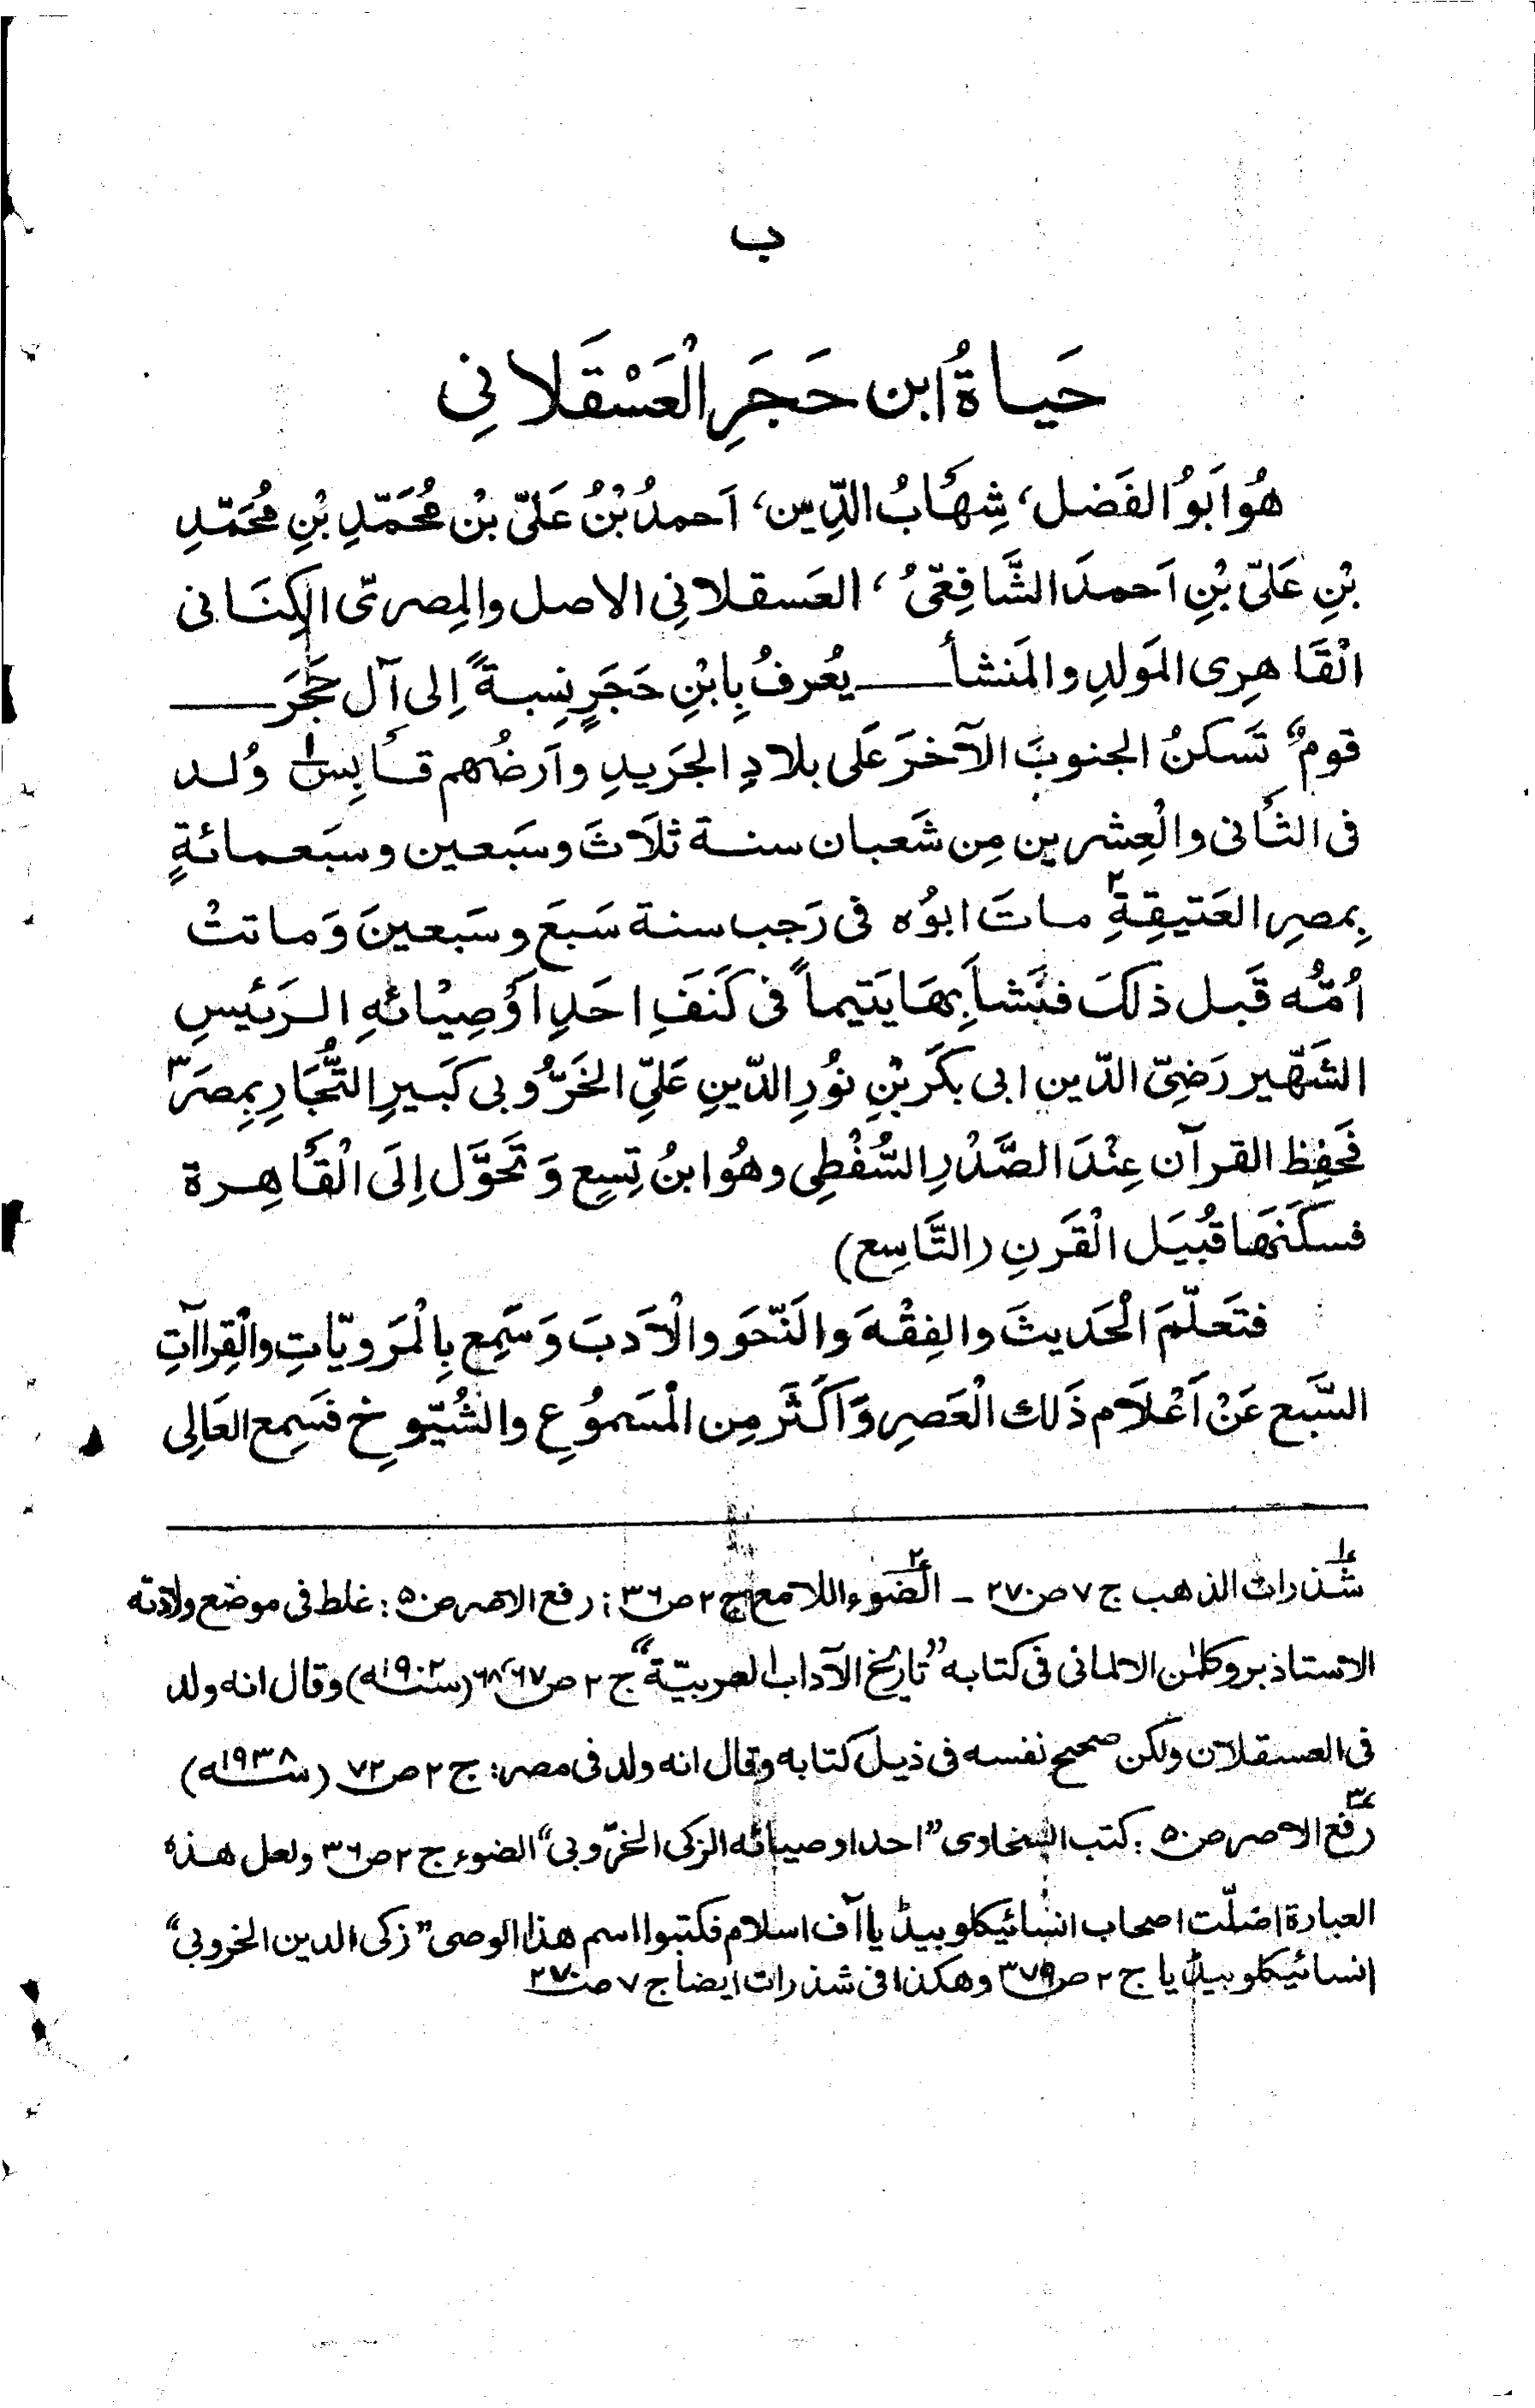 ب
حَیاةُ ابن حَجَرِ الْعَسْقَلانِی
هُوَ اَبُوُ الفَضل، شِهَابُ الدِّین، اَحمدُ بْنُ عَلیّ بْن مُحَمَّدِ بْنِ مُحَمَّدِ
بْنِ عَلیّ بْنِ اَحمدَ الشَّافِعّیُ، العَسقلانِی الاصل والمِصریّ الکِنَانی
الْقَاهِرِی المَولدِ والمَنشأ — یُعرفُ بِابْنِ حَجَرٍ نِسبةً اِلی آل حَجَرَ —
قومٌ تَسکنُ الجنوبَ الآخرَ عَلی بلادِ الجَریدِ واَرضُهم قَابِس۱ وُلد
فی الثانی والْعِشرین مِن شَعبان سنة ثلَاثَ وسَبعین وسَبعمائةٍ
بِمصرِ العَتیقِةِ۲ ماتَ ابوُه فی رَجب سنة سَبعَ وسَبعینَ وَماتتْ
اُمُّه قَبل ذلكَ فنَشأَ بِهَا یَتیماً فی کَنَفِ احَدِ اَوْصِیْائهِ الرَئیسِ
الشَهّیر رَضِیّ الدّین ابی بکَر بْنِ نوُرِ الدّینِ عَلیِّ الخَرّوُبی کَبیرِ التُّجَارِ بِمِصَر۳
فَحَفِظ القرآن عِنْدَ الصَّدْرِ السُّفْطِی وهُوَ ابنُ تِسِعِ وَتَحَوَّل اِلَی الْقَاهِرة
فسکَنَهَا قُبیَل الْقَرنِ (التَّاسِع)
فتَعلّمَ الْحَدیثَ والفِقْهَ والَنّحَو والْاَدبَ وَسَمِع بِالْمَرویّاتِ والْقِراآتِ
السَّبع عَنْ اَعْلَام ذَلك الْعَصرِ وَاَکثَر مِن الْمسَموُعِ والشُیّوخِ فسَمِع العَالِی
۱ شذرات الذهب ج ۷ ص ۲۷۰ - ۲ الضوء اللامع ج ۲ ص ۳۶ ؛ رفع الاصر ص ۵۰ : غلط فی موضع ولادته
الاستاذ بروکلمن الالمانی فی کتابه "تاریخ الآداب العربیّة" ج ۲ ص ۶۷، ۶۸ (سنه ۱۹۰۲) وقال انه ولد
فی العسقلان ولکن صحح نفسه فی ذیل کتابه وقال انه ولد فی مصر: ج ۲ ص ۷۲ (سنه ۱۹۳۸)
۳ رفع الاصر ص ۵۰ : کتب السخاوی "احد اوصیائه الزکی الخرّوبی" الضوء ج ۲ ص ۳۶ ولعل هذه
العبارة اضلّت اصحاب انسائیکلوبیڈیا آف اسلام فکتبوا اسم هذا الوصی "زکی الدین الخروبی"
انسائیکلوبیڈیا ج ۲ ص ۳۷۹ وهکذا فی شذرات ایضا ج ۷ ص ۲۷۰